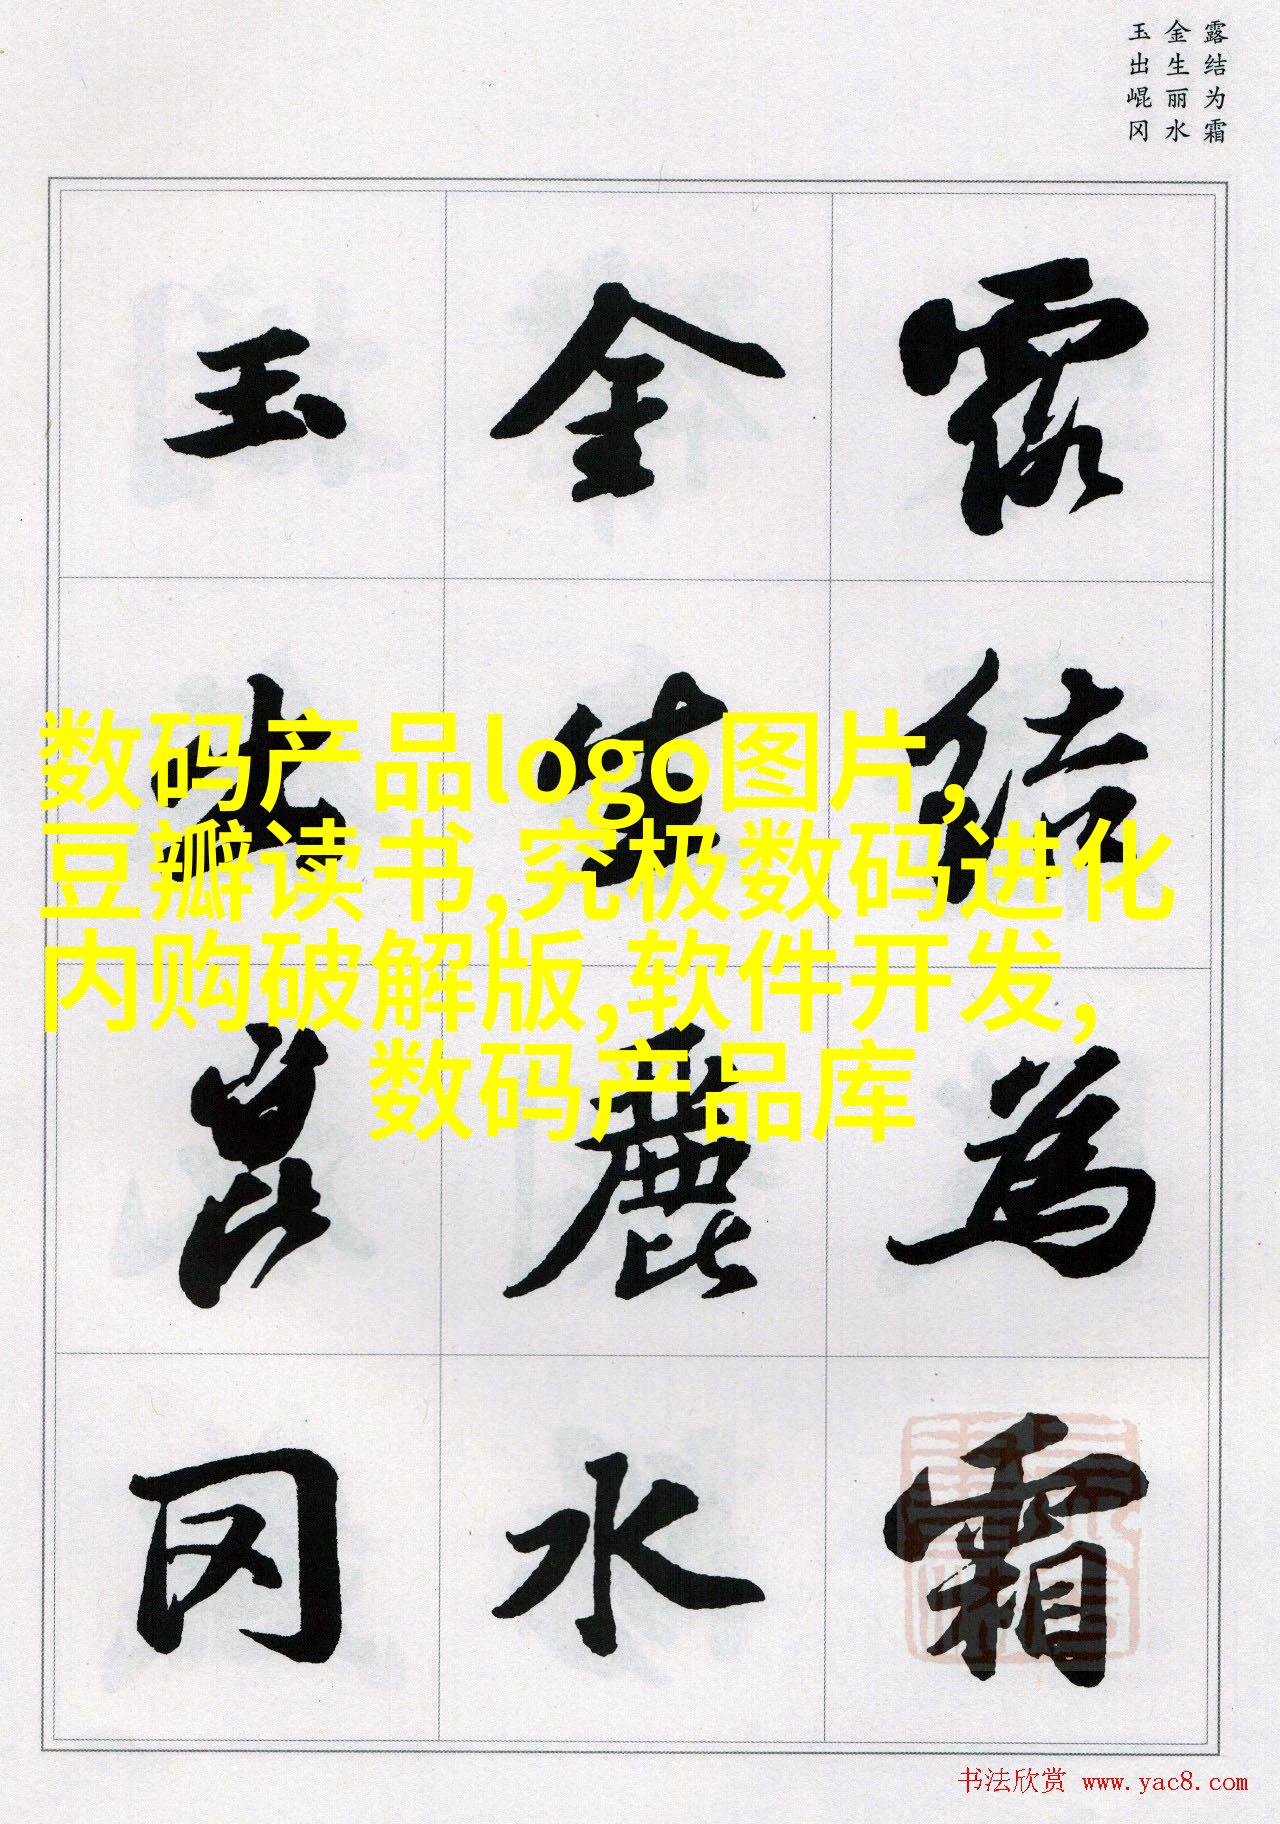 露结为霜
金生丽水
玉出崐冈
露结為霜
金生麗水
玉出崑冈
数码产品logo图片,
豆瓣读书,究极数码进化
内购破解版,软件开发,
数码产品库
书法欣赏 www.yac8.com